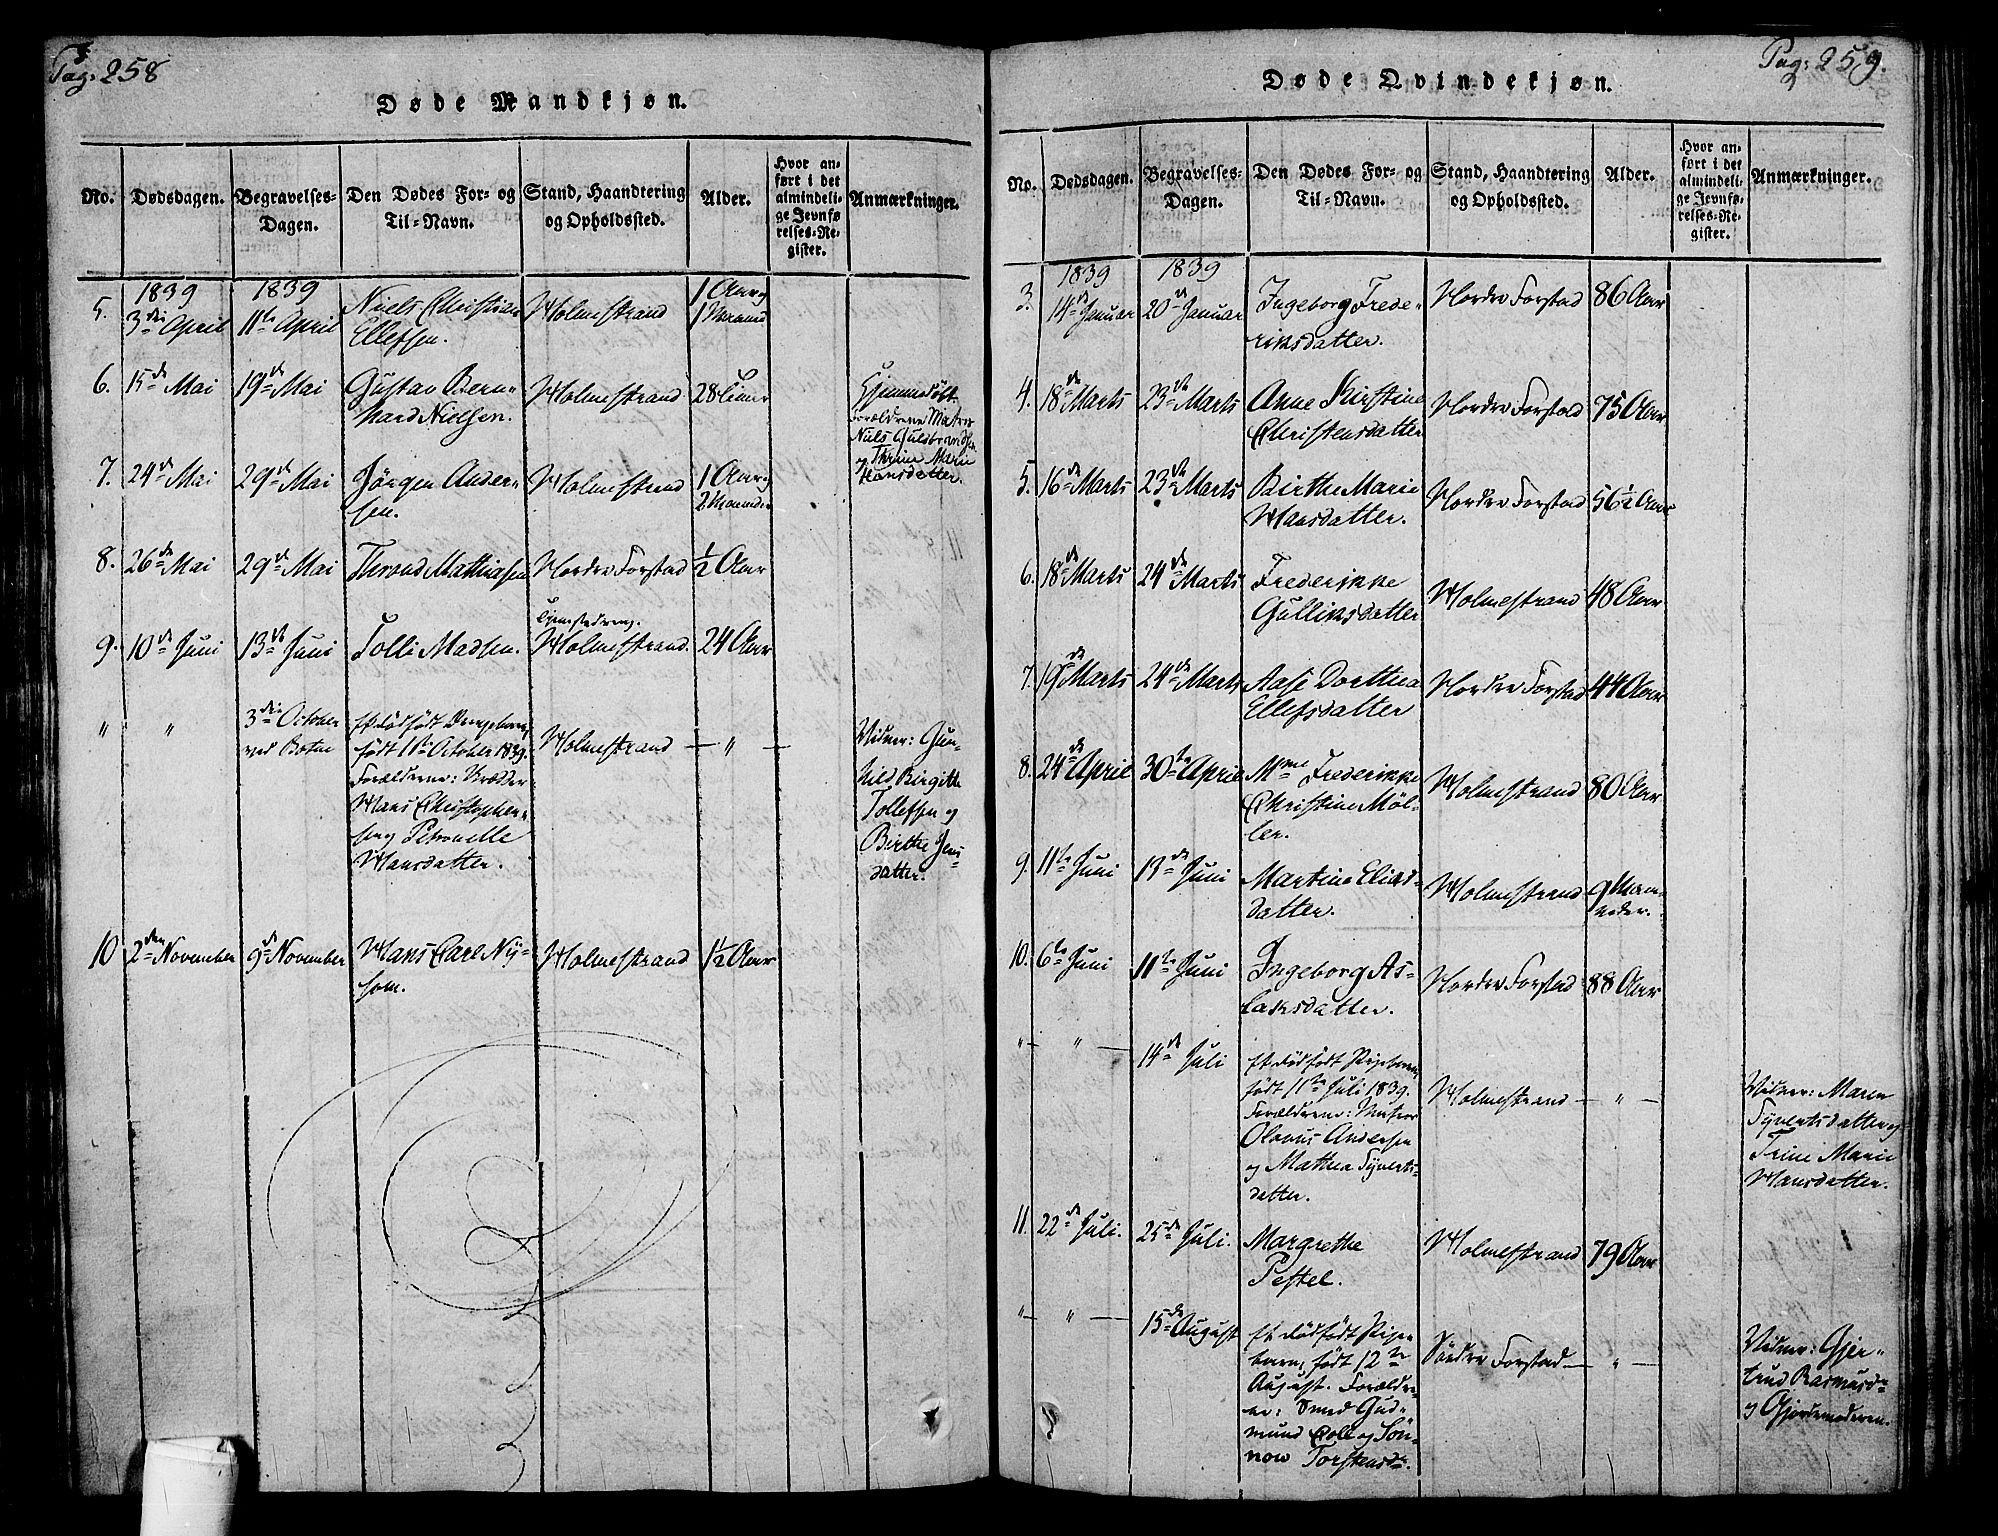 Pag: 258
Døde Mandkjøn.
No. Dødsdagen. Begravelses-Dagen. Den Dødes For- og Til-Navn. Stand, Haandtering og Opholdssted. Alder. Hvor anført i det almindelige Jevnførelses-Register. Anmærkninger.
1839 1839
5. 3die April 11te April Niels Christian Ellefsen. Holmestrand 1 Aar og 1 Maaned
6. 15de Mai 19de Mai Gustav Bernhard Nielsen. Holmestrand 28 Timer Hjemmedöbt. Forældrene Matros Niels Guldbrandsen og Thrine Marie Hansdatter.
7. 24de Mai 29de Mai Jörgen Andersen. Holmestrand 1 Aar og 2 Maaneder
8. 26de Mai 29de Mai Thrond Mathiasen Nordre Forstad 1/2 Aar
9. 10de Juni 13de Juni Tolli Madsen. Tjenestedreng. Holmestrand. 24 Aar
" " 3die October ved Botne Et dödfödt Drengebarn, födt 1ste October 1839. Forældrene: Hans Christophersen og Petronelle Hansdatter. Holmestrand — " — Vidner: Gunhild Birgitte Tollefsen og Birthe Jensdatter.
10 2den November 9de November Hans Carl Nysom. Holmestrand 1 1/2 Aar
Pag: 259.
Døde Qvindekjøn.
No. Dødsdagen. Begravelses-Dagen. Den Dødes For- og Til-Navn. Stand, Haandtering og Opholdssted. Alder. Hvor anført i det almindelige Jevnførelses-Register. Anmærkninger.
1839 1839
3. 14de Januar 20de Januar Ingeborg Frederiksdatter. Nordre Forstad 86 Aar
4. 18de Marts 23de Marts Anne Kirstine Christensdatter Nordre Forstad 75 Aar
5. 16de Marts 23de Marts Birthe Marie Hansdatter. Nordre Forstad 56 1/2 Aar
6. 18de Marts 24de Marts Frederikke Gulliksdatter Holmestrand 48 Aar
7. 19de Marts 24de Marts Aase Dorthea Ellefsdatter Nordre Forstad 44 Aar
8. 24de April 30te April Mme Frederikke Christine Möller. Holmestrand 80 Aar
9. 11te Juni 13de Juni Martine Eliasdatter. Holmestrand 9 Maaneder.
10. 6te Juni 11te Juni Ingeborg Aslaksdatter. Nordre Forstad 88 Aar
" — " — 14de Juli Et dödfödt Pigebarn, födt 11te Juli 1839. Forældrene: Matros Olavus Andersen og Mathea Syvertsdatter. Holmestrand — " — Vidner: Maren Syvertsdatter og Trine Marie Hansdatter.
11. 22de Juli. 25de Juli. Margrethe Pestel. Holmestrand 79 Aar
" — " — 15de August Et dödfödt Pigebarn, födt 12te August. Forældrene: Smed Gudmund Olai og Sönnow Torstensdr. Söndre Forstad — " — Vidner: Gjertrud Rasmusdr og Gjordemoderen.